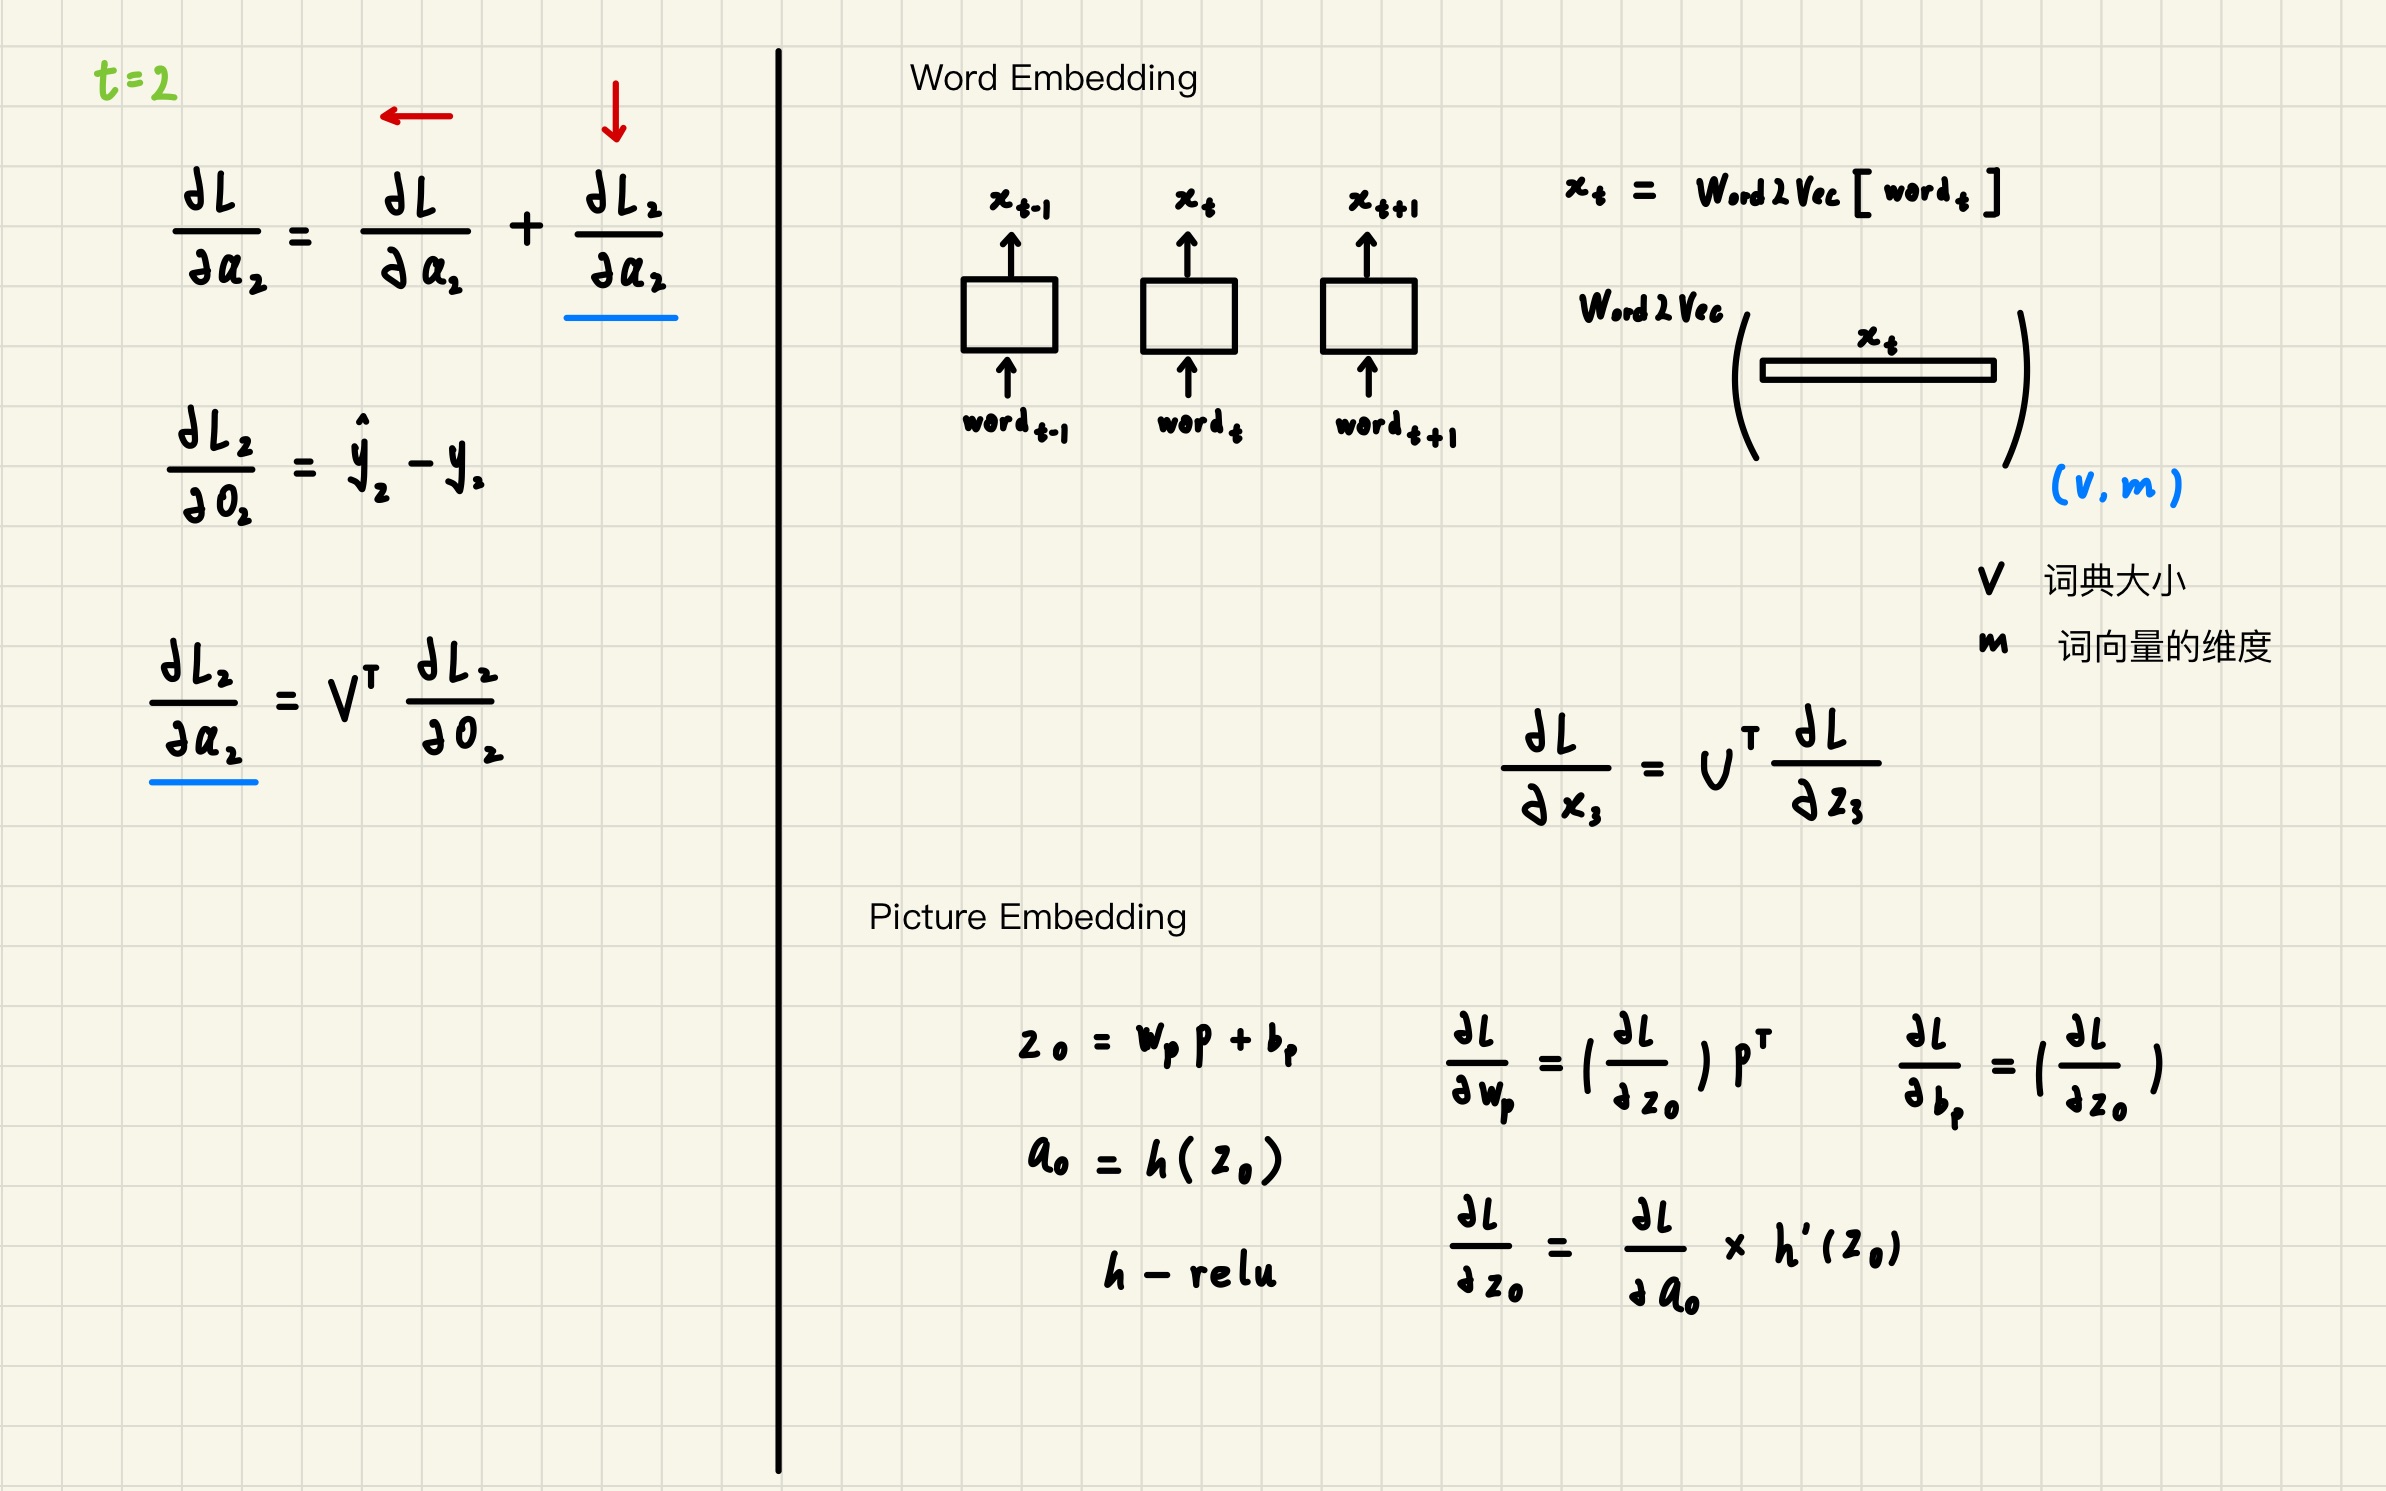 t=2
∂L/∂a₂ = ∂L/∂a₂ + ∂L₂/∂a₂
∂L₂/∂O₂ = ŷ₂ - y₂
∂L₂/∂a₂ = Vᵀ ∂L₂/∂O₂
Word Embedding
x_{t-1} x_t x_{t+1}
word_{t-1} word_t word_{t+1}
x_t = Word2Vec [ word_t ]
Word2Vec
x_t
(V, m)
V 词典大小
m 词向量的维度
∂L/∂x₃ = Uᵀ ∂L/∂z₃
Picture Embedding
z₀ = W_p p + b_p
∂L/∂W_p = (∂L/∂z₀) pᵀ
∂L/∂b_p = (∂L/∂z₀)
a₀ = h(z₀)
∂L/∂z₀ = ∂L/∂a₀ × h'(z₀)
h - relu